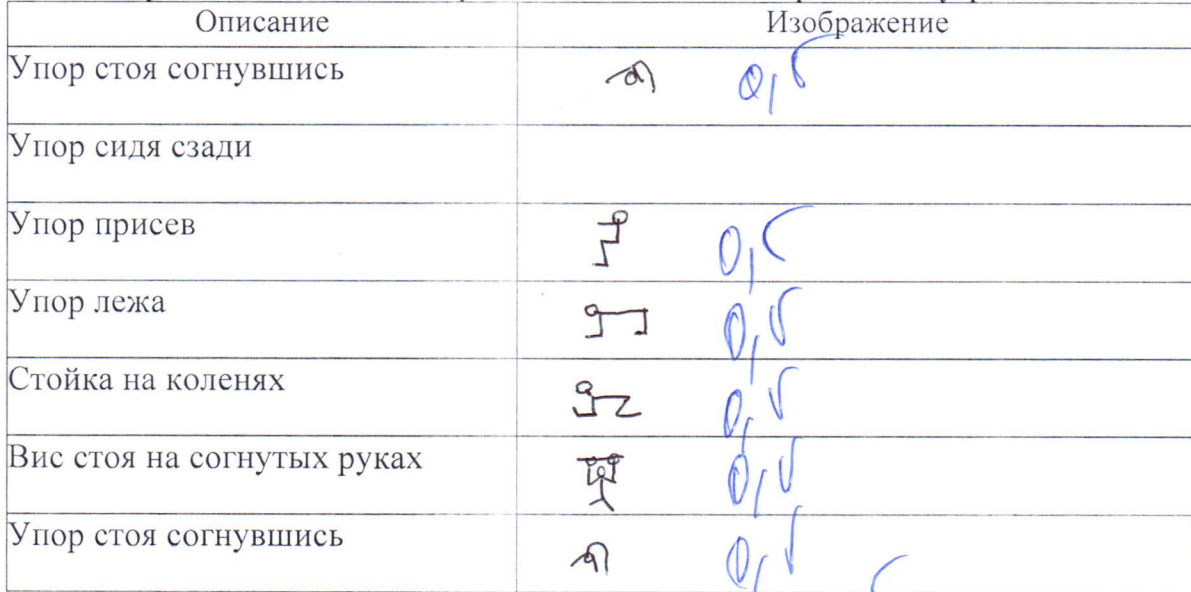 Описание Изображение
Упор стоя согнувшись 0,5
Упор сидя сзади
Упор присев 0,5
Упор лежа 0,5
Стойка на коленях 0,5
Вис стоя на согнутых руках 0,5
Упор стоя согнувшись 0,5